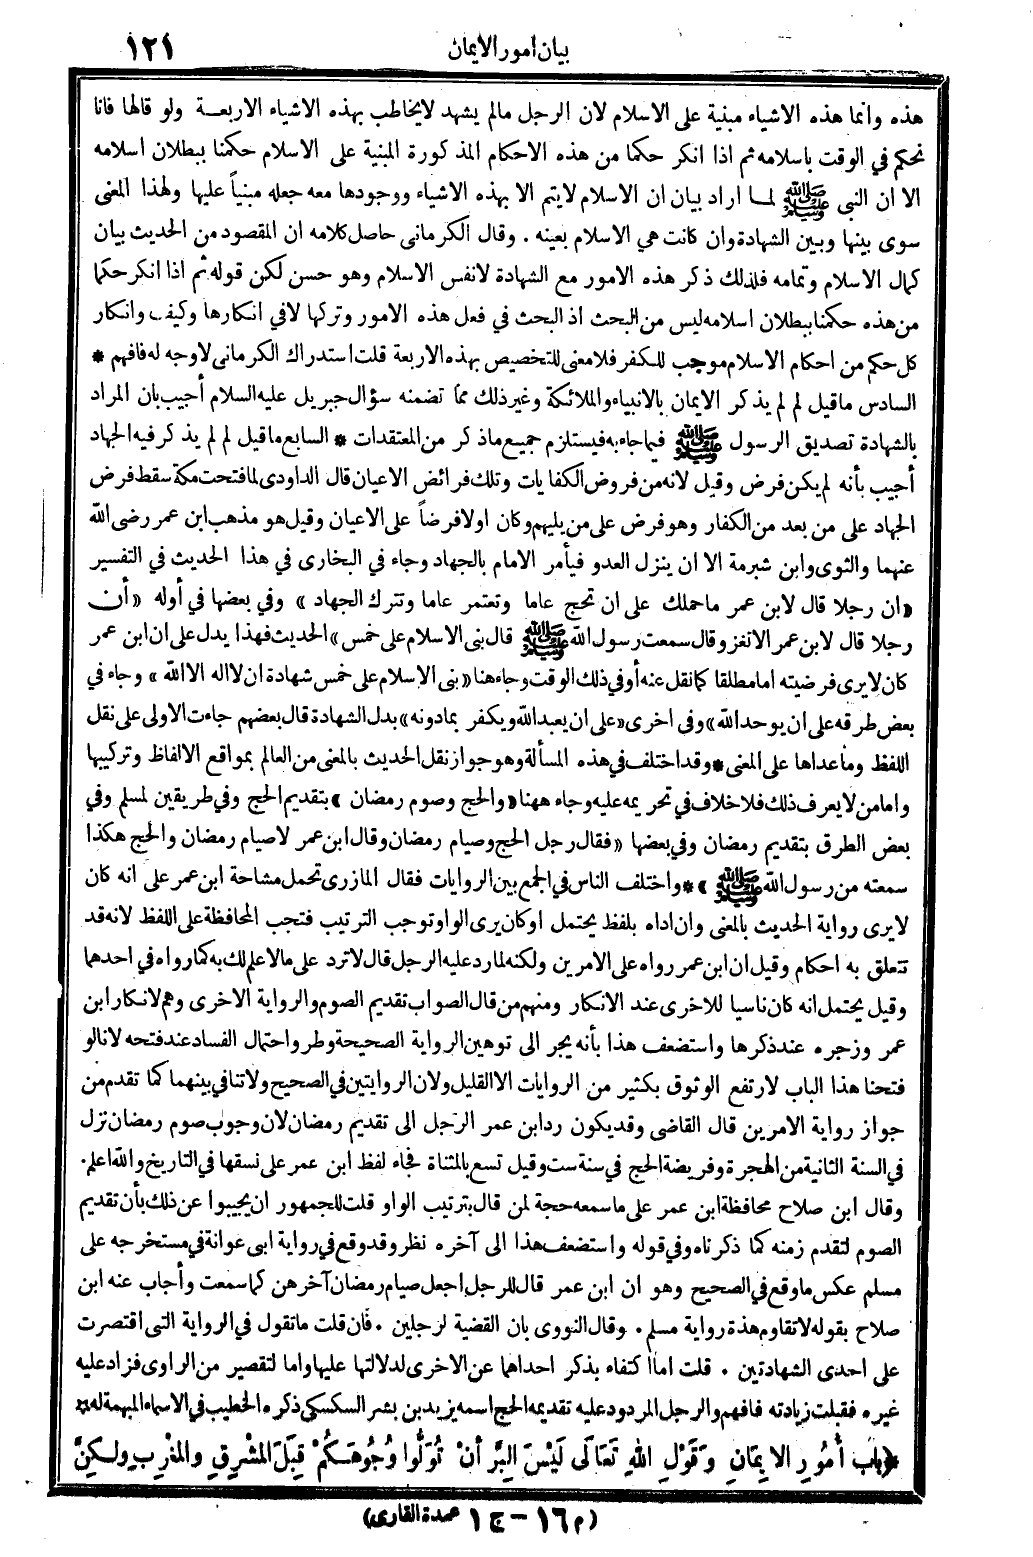 بيان أمور الايمان ١٢١
هذه وانما هذه الاشياء مبنية على الاسلام لان الرجل مالم يشهد لايخاطب بهذه الاشياء الاربعة ولو قالها فانا
نحكم في الوقت باسلامه ثم اذا انكر حكما من هذه الاحكام المذكورة المبنية على الاسلام حكمنا ببطلان اسلامه
الا ان النبى ﷺ لما اراد بيان ان الاسلام لايتم الا بهذه الاشياء ووجودها معه جعله مبنياً عليها ولهذا المعنى
سوى بينها وبين الشهادة وان كانت هي الاسلام بعينه . وقال الكرمانى حاصل كلامه ان المقصود من الحديث بيان
كمال الاسلام وتمامه فلذلك ذكر هذه الامور مع الشهادة لانفس الاسلام وهو حسن لكن قوله ثم اذا انكر حكما
من هذه حكمنا ببطلان اسلامه ليس من البحث اذ البحث في فعل هذه الامور وتركها لافي انكارها وكيف وانكار
كل حكم من احكام الاسلام موجب للكفر فلامعنى للتخصيص بهذه الاربعة قلت استدراك الكرمانى لاوجه له فافهم *
السادس ماقيل لم لم يذكر الايمان بالانبياء والملائكة وغير ذلك مما تضمنه سؤال جبريل عليه السلام أجيب بان المراد
بالشهادة تصديق الرسول ﷺ فيما جاء به فيستلزم جميع ماذكر من المعتقدات * السابع ماقيل لم لم يذكر فيه الجهاد
أجيب بأنه لم يكن فرض وقيل لانه من فروض الكفايات وتلك فرائض الاعيان قال الداودى لما فتحت مكة سقط فرض
الجهاد على من بعد من الكفار وهو فرض على من يليهم وكان اولا فرضاً على الاعيان وقيل هو مذهب ابن عمر رضى الله
عنهما والثوى وابن شبرمة الا ان ينزل العدو فيأمر الامام بالجهاد وجاء في البخارى في هذا الحديث في التفسير
«ان رجلا قال لابن عمر ماحملك على ان تحج عاما وتعتمر عاما وتترك الجهاد» وفي بعضها في أوله «أن
رجلا قال لابن عمر الاتغزو قال سمعت رسول الله ﷺ قال بنى الاسلام على خمس» الحديث فهذا يدل على ان ابن عمر
كان لايرى فرضيته اما مطلقا كما نقل عنه أو في ذلك الوقت وجاء هنا «بنى الاسلام على خمس شهادة ان لااله الا الله» وجاء في
بعض طرقه على ان يوحد الله» وفى اخرى «على ان يعبد الله ويكفر بمادونه» بدل الشهادة قال بعضهم جاءت الاولى على نقل
اللفظ وماعداها على المعنى * وقد اختلف في هذه المسألة وهو جواز نقل الحديث بالمعنى من العالم بمواقع الالفاظ وتركيبها
وامامن لا يعرف ذلك فلا خلاف في تحريمه عليه وجاء ههنا «والحج وصوم رمضان» بتقديم الحج وفي طريقين لمسلم وفي
بعض الطرق بتقديم رمضان وفي بعضها «فقال رجل الحج وصيام رمضان وقال ابن عمر لا صيام رمضان والحج هكذا
سمعته من رسول الله ﷺ» * واختلف الناس في الجمع بين الروايات فقال المازرى تحمل مشاحة ابن عمر على انه كان
لايرى رواية الحديث بالمعنى وان اداه بلفظ يحتمل او كان يرى الواو توجب الترتيب فتجب المحافظة على اللفظ لانه قد
تتعلق به احكام وقيل ان ابن عمر رواه على الامرين ولكنه لما رد عليه الرجل قال لاترد على مالا علم لك به كما رواه في احدهما
وقيل يحتمل انه كان ناسيا للاخرى عند الانكار ومنهم من قال الصواب تقديم الصوم والرواية الاخرى وهم لانكار ابن
عمر وزجره عند ذكرها واستضعف هذا بأنه يجر الى توهين الرواية الصحيحة وطرو احتمال الفساد عند فتحه لانالو
فتحنا هذا الباب لارتفع الوثوق بكثير من الروايات الا القليل ولان الروايتين في الصحيح ولاتنافي بينهما كما تقدم من
جواز رواية الامرين قال القاضى وقد يكون رد ابن عمر الرجل الى تقديم رمضان لان وجوب صوم رمضان نزل
في السنة الثانية من الهجرة وفريضة الحج في سنة ست وقيل تسع بالمثناة فجاء لفظ ابن عمر على نسقها في التاريخ والله اعلم.
وقال ابن صلاح محافظة ابن عمر على ماسمعه حجة لمن قال بترتيب الواو قلت للجمهور ان يجيبوا عن ذلك بأن تقديم
الصوم لتقدم زمنه كما ذكرناه وفي قوله واستضعف هذا الى آخره نظر وقد وقع في رواية ابى عوانة في مستخرجه على
مسلم عكس ماوقع في الصحيح وهو ان ابن عمر قال للرجل اجعل صيام رمضان آخرهن كما سمعت وأجاب عنه ابن
صلاح بقوله لاتقاوم هذة رواية مسلم . وقال النووى بان القضية لرجلين . فان قلت ماتقول في الرواية التى اقتصرت
على احدى الشهادتين . قلت اما اكتفاء بذكر احداهما عن الاخرى لدلالتها عليها واما لتقصير من الراوى فزاد عليه
غيره فقبلت زيادته فافهم والرجل المردود عليه تقديمه الحج اسمه يزيد بن بشر السكسكي ذكره الخطيب في الاسماء المبهمة له *
﴿باب أُمُورِ الايمَانِ وَقَوْلِ اللهِ تَعَالَى لَيْسَ البِرَّ أَنْ تُوَلُّوا وُجُوهَكُمْ قِبَلَ المَشْرِقِ والمَغْرِبِ ولكِنَّ
(م ١٦ – ج ١ عمدة القارى)